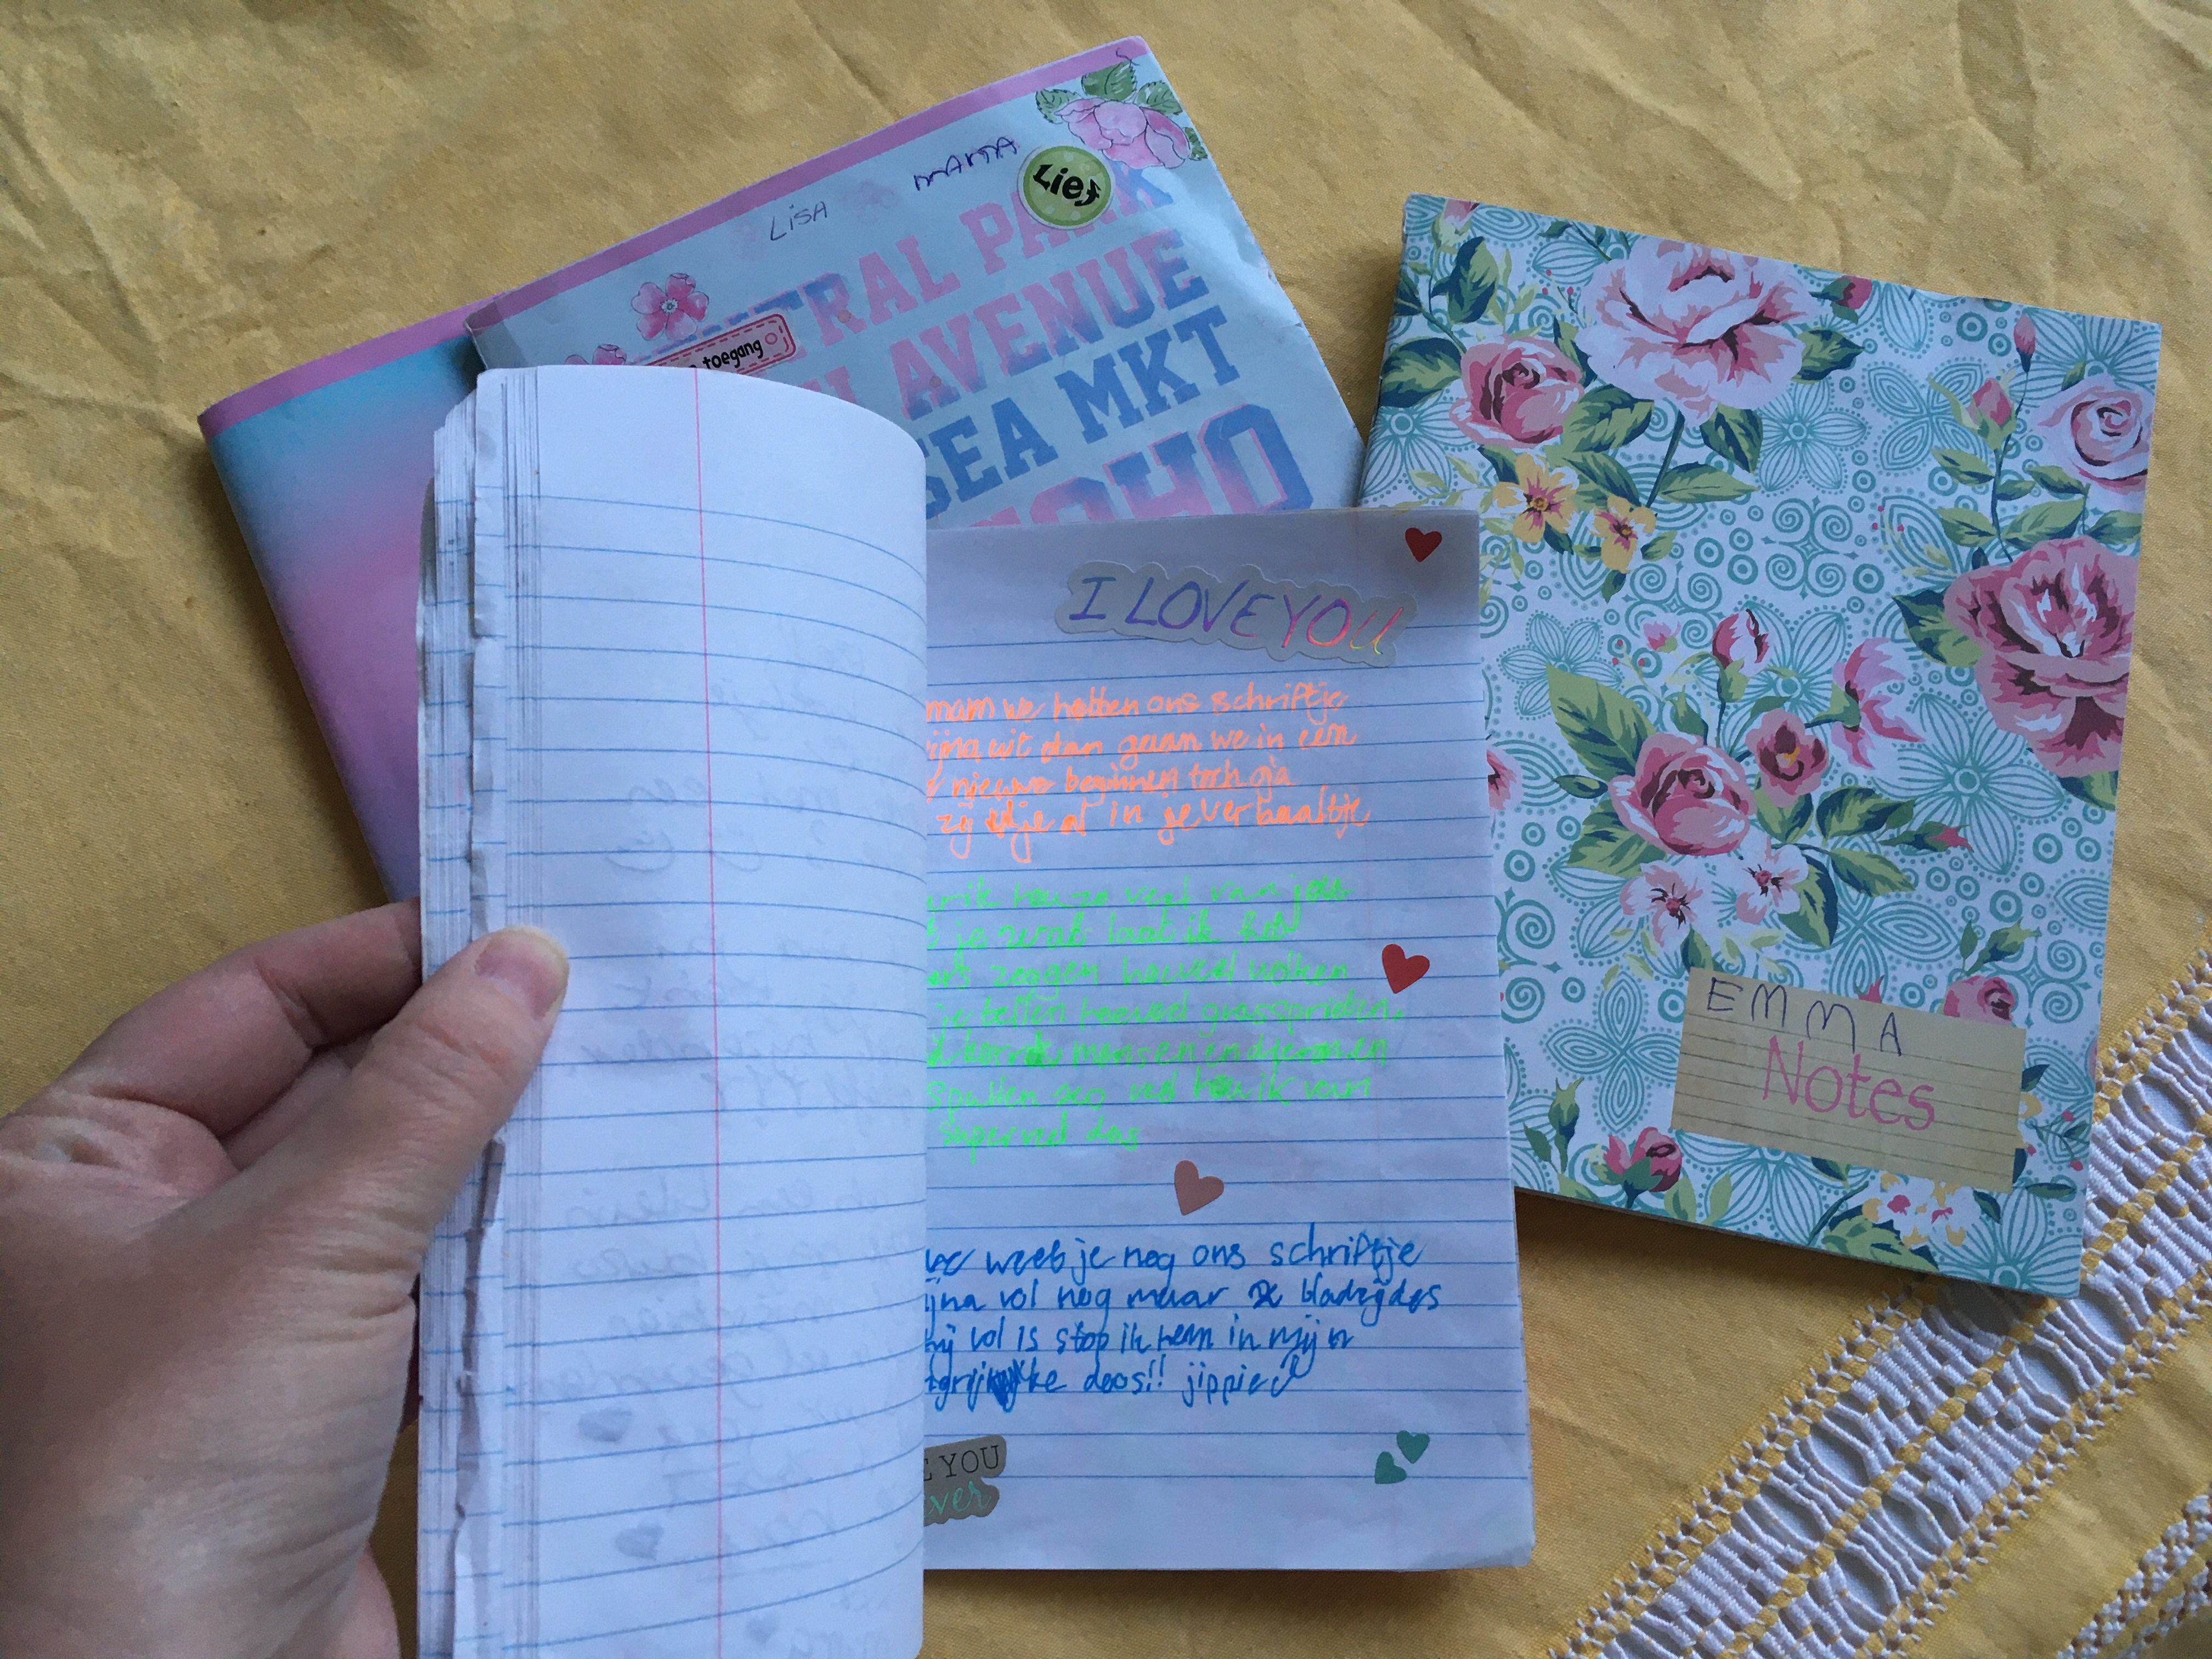 MAMA
Lief
LiSA
TRAL PARK
toegang
AVENUE
SEA MKT
OHO
I LOVE YOU
mam we hebben ons schriftje
uit dan gaan we in een
nieuwe beginnen toch ga
zij al in je verhaaltje
veel van je
je wat laat ik het
zeggen hoeveel wolken
je tellen hoeveel grassprieten,
mensen en dieren en
Spullen zo veel hou ik van
superveel dus
weet je nog ons schriftje
ijna vol nog maar 2 bladzijdes
hij vol is stop ik hem in mijn
doos!! jippie
E YOU
ver
EMMA
Notes